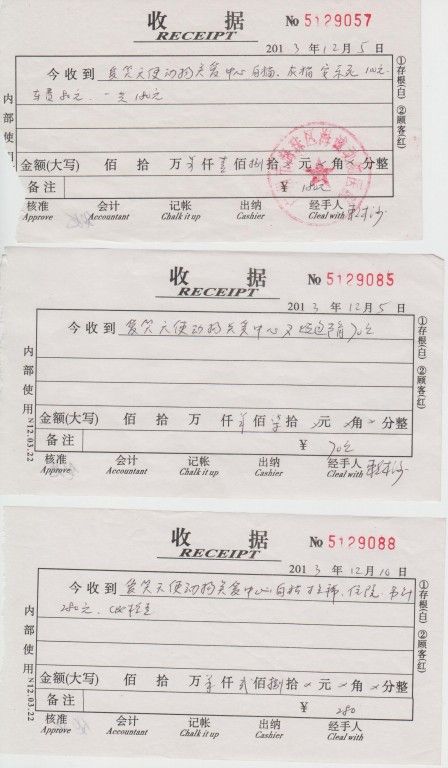 收 据 No 5129057
RECEIPT
2013年12月5日
今收到 爱笑天使动物关爱中心白猫、灰猫安乐死100元.
车费80元. 一共180元
金额(大写) 佰 拾 万 仟 壹 佰 捌 拾 元 角 分整
备注 ¥ 180元
核准 会计 记帐 出纳 经手人
Approve Accountant Chalk it up Cashier Cleal with
内部使用
①存根(白) ②顾客(红)
收 据 No 5129085
RECEIPT
2013年12月5日
今收到 爱笑天使动物关爱中心 70元
金额(大写) 佰 拾 万 仟 佰 柒 拾 元 角 分整
备注 ¥ 70元
核准 会计 记帐 出纳 经手人
Approve Accountant Chalk it up Cashier Cleal with
内部使用 N12.03.22
①存根(白) ②顾客(红)
收 据 No 5129088
RECEIPT
2013年12月10日
今收到 爱笑天使动物关爱中心白猫 住院
280元.
金额(大写) 佰 拾 万 仟 贰 佰 捌 拾 元 角 分整
备注 ¥ 280
核准 会计 记帐 出纳 经手人
Approve Accountant Chalk it up Cashier Cleal with
内部使用 N12.03.22
①存根(白) ②顾客(红)